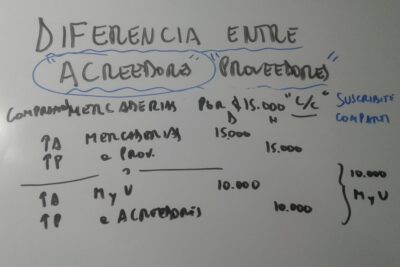 DIFERENCIA ENTRE
"ACREEDORES" "PROVEEDORES"
COMPRAMOS MERCADERIAS POR $15.000 "C/C"
SUSCRIBITE
COMPARTI
D H
↑A MERCADERIAS 15.000
↑P a Prov. 15.000
2
↑A M y U 10.000
↑P a ACREEDORES 10.000
10.000
M y U